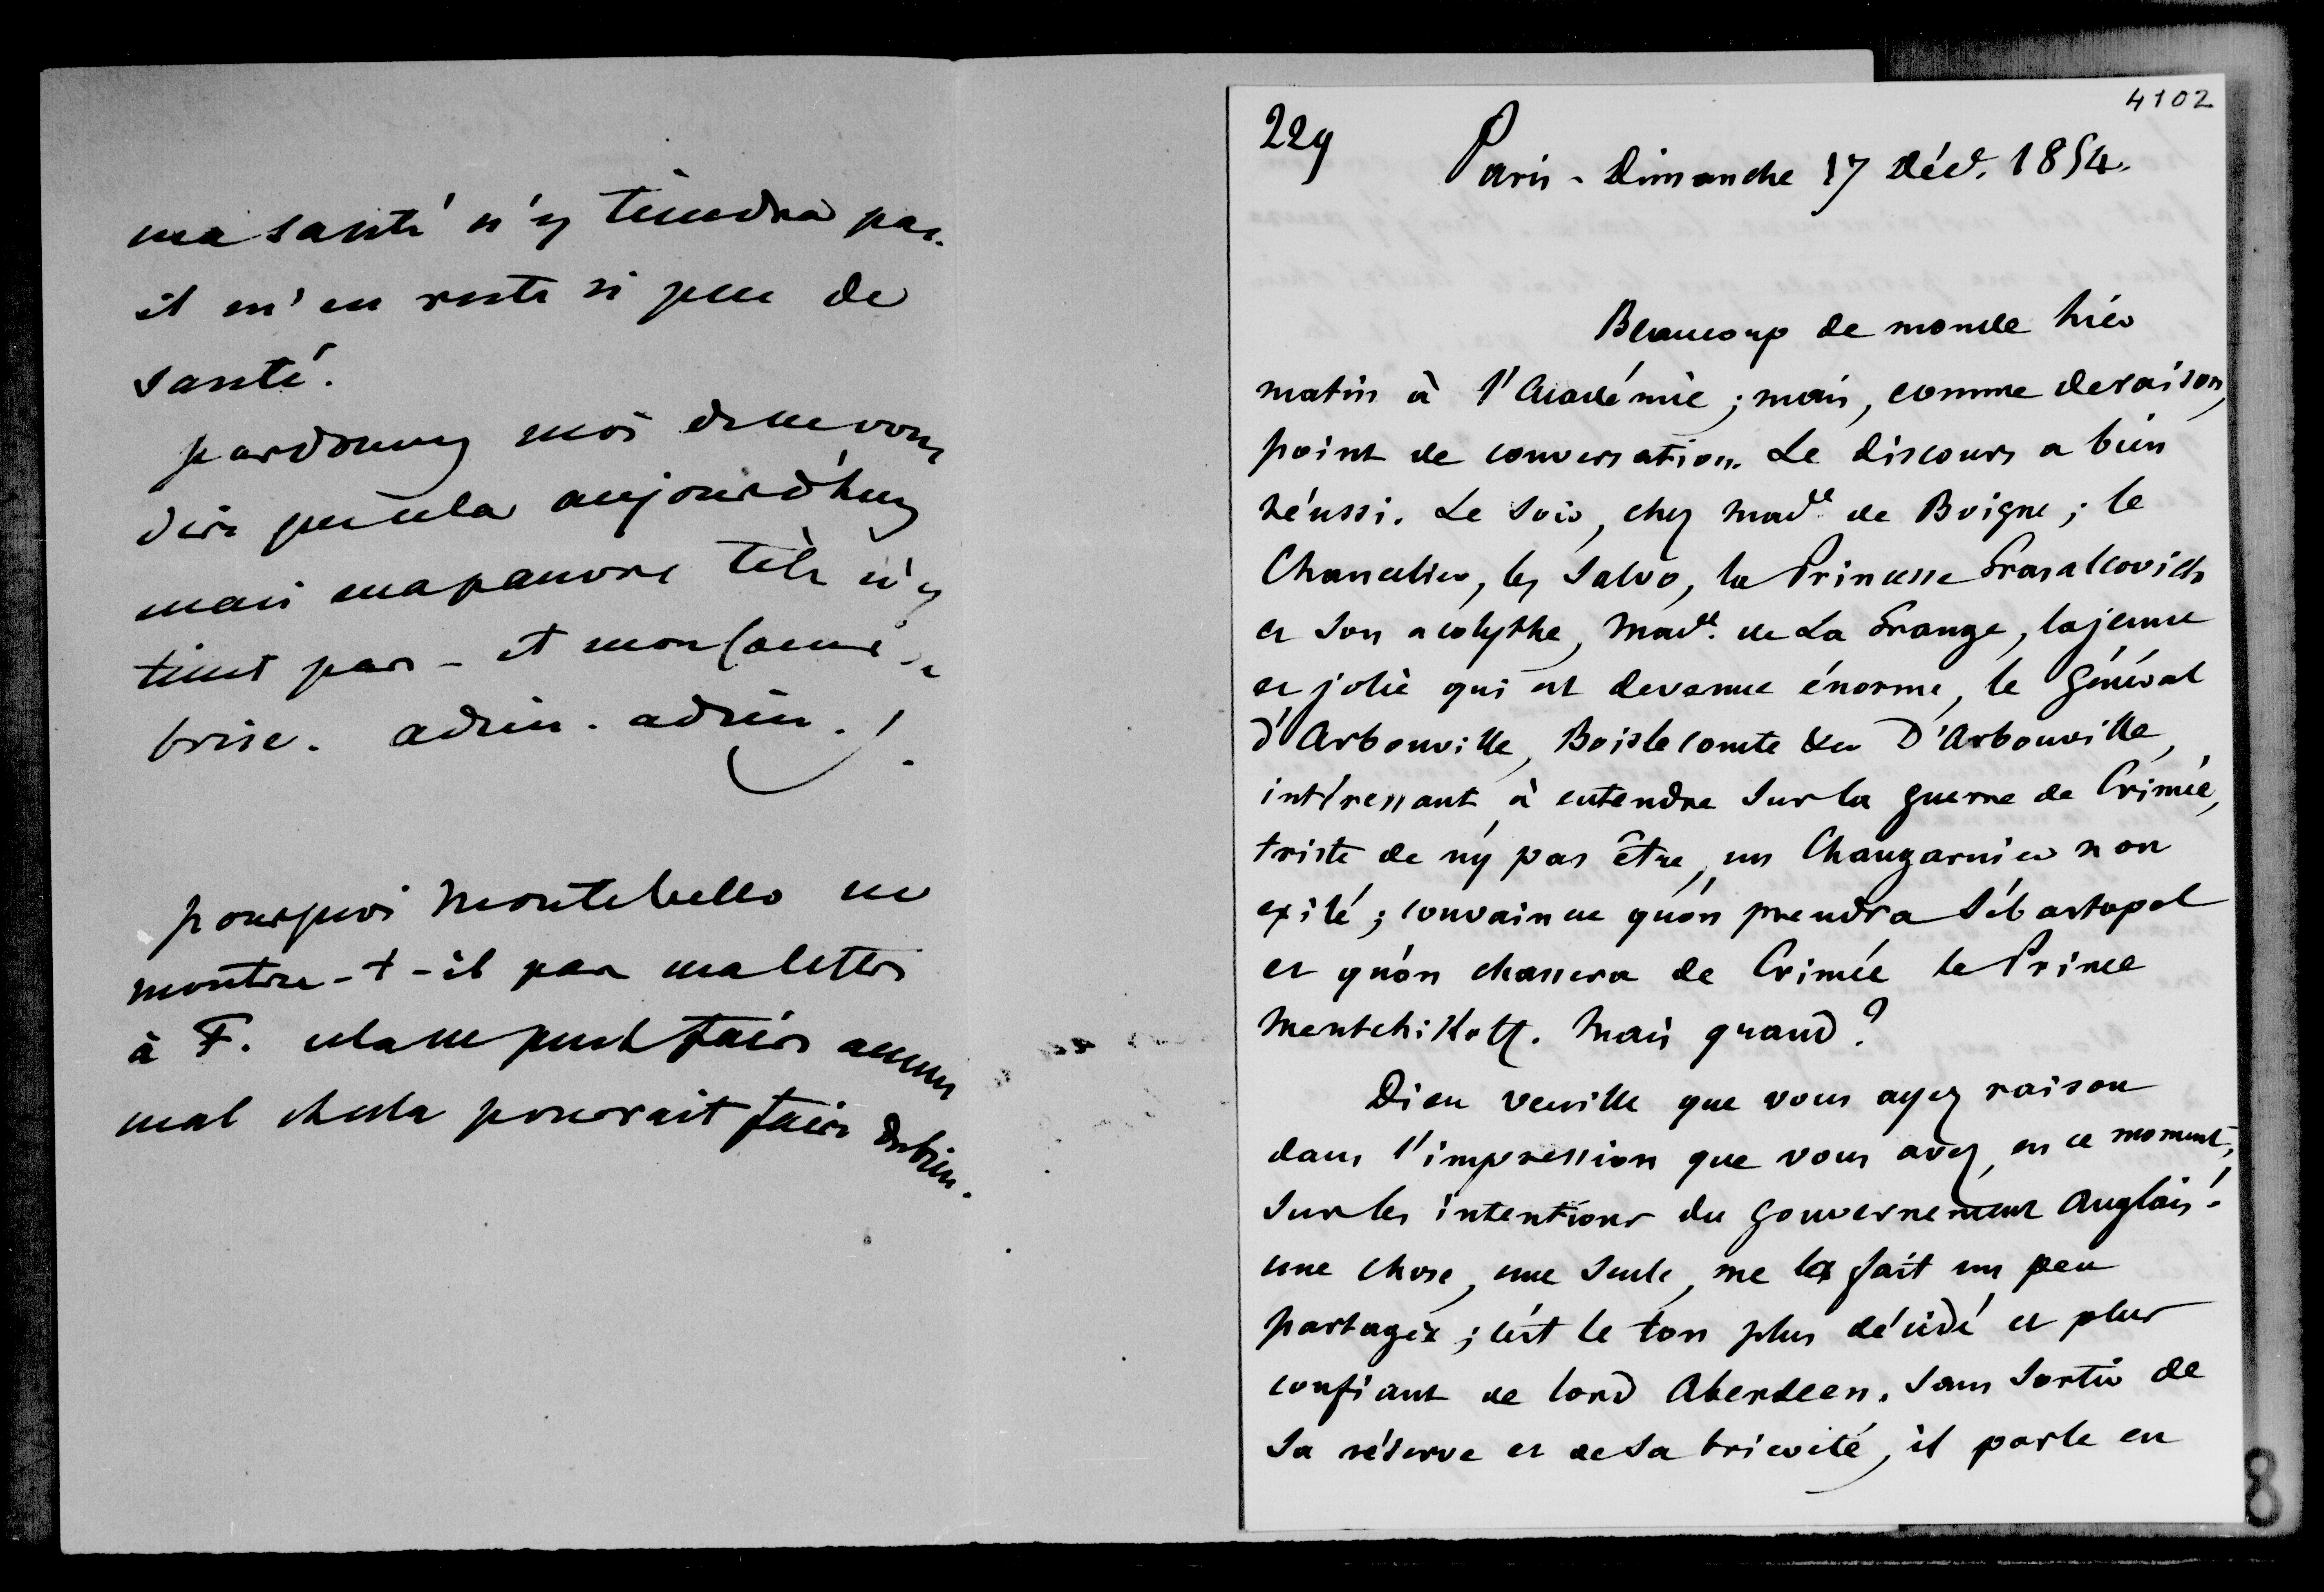 ma santé n'y tiendra pas.
il m'en reste si peu de
santé.
pardonnez moi de ne vous
dire que cela aujourd'huy
mais ma pauvre tête n'y
tient pas - et mon cœur se
brise. adieu. adieu. !
pourquoi Montebello ne
montre-t-il pas ma lettre
à F. cela ne peut faire aucun
mal & cela pourrait faire du bien.
4102
229
Paris - Dimanche 17 Déc. 1854.
Beaucoup de monde hier
matin à l'Académie ; mais, comme de raison,
point de conversation. Le discours a bien
réussi. Le soir, chez Made de Boigne ; le
Chancelier, les Salvo, la Princesse Grasalcovich
et son acolythe, Made. de La Grange, la jeune
et jolie qui est devenue énorme, le Général
d'Arbouville, Boislecomte &a D'Arbouville,
intéressant à entendre sur la guerre de Crimée,
triste de n'y pas être, un Changarnier non
exilé ; convaincu qu'on prendra Sébastopol
et qu'on chassera de Crimée le Prince
Mentchikoff. Mais quand ?
Dieu veuille que vous ayez raison
dans l'impression que vous avez, en ce moment,
sur les intentions du gouvernement Anglais !
une chose, une seule, me la fait un peu
partager ; c'est le ton plus décidé et plus
confiant de lord Aberdeen. Sans sortir de
sa réserve et de sa brièveté, il parle en
8